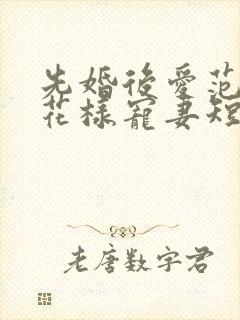 先婚後愛范
花樣寵妻短
老唐數字君